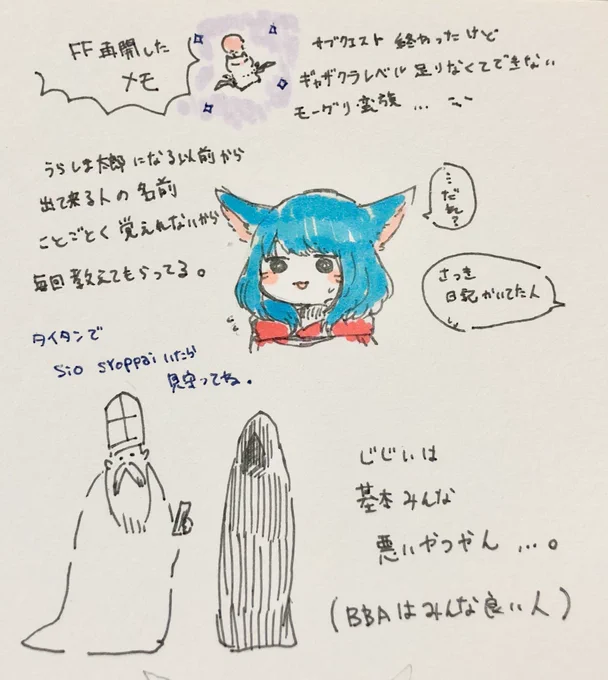 FF再開した
メモ
サブクエスト 終わったけど
ギャザクラレベル 足りなくてできない
モーグリ蛮族 …
うらしま太郎になる以前から
出て来る人の名前
ことごとく覚えれないから
毎回教えてもらってる。
…だれ?
さっき
日記かいてた人
タイタンで
Sio Syoppai いたら
見守ってね。
じじいは
基本みんな
悪いやつやん …。
(BBAはみんな良い人)